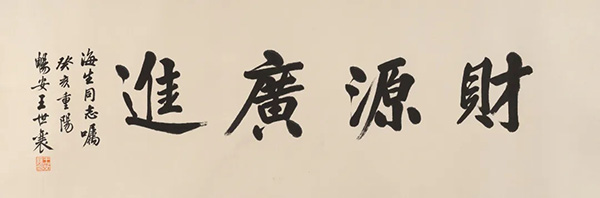 財源廣進
海生同志囑
癸亥重陽
暢安王世襄